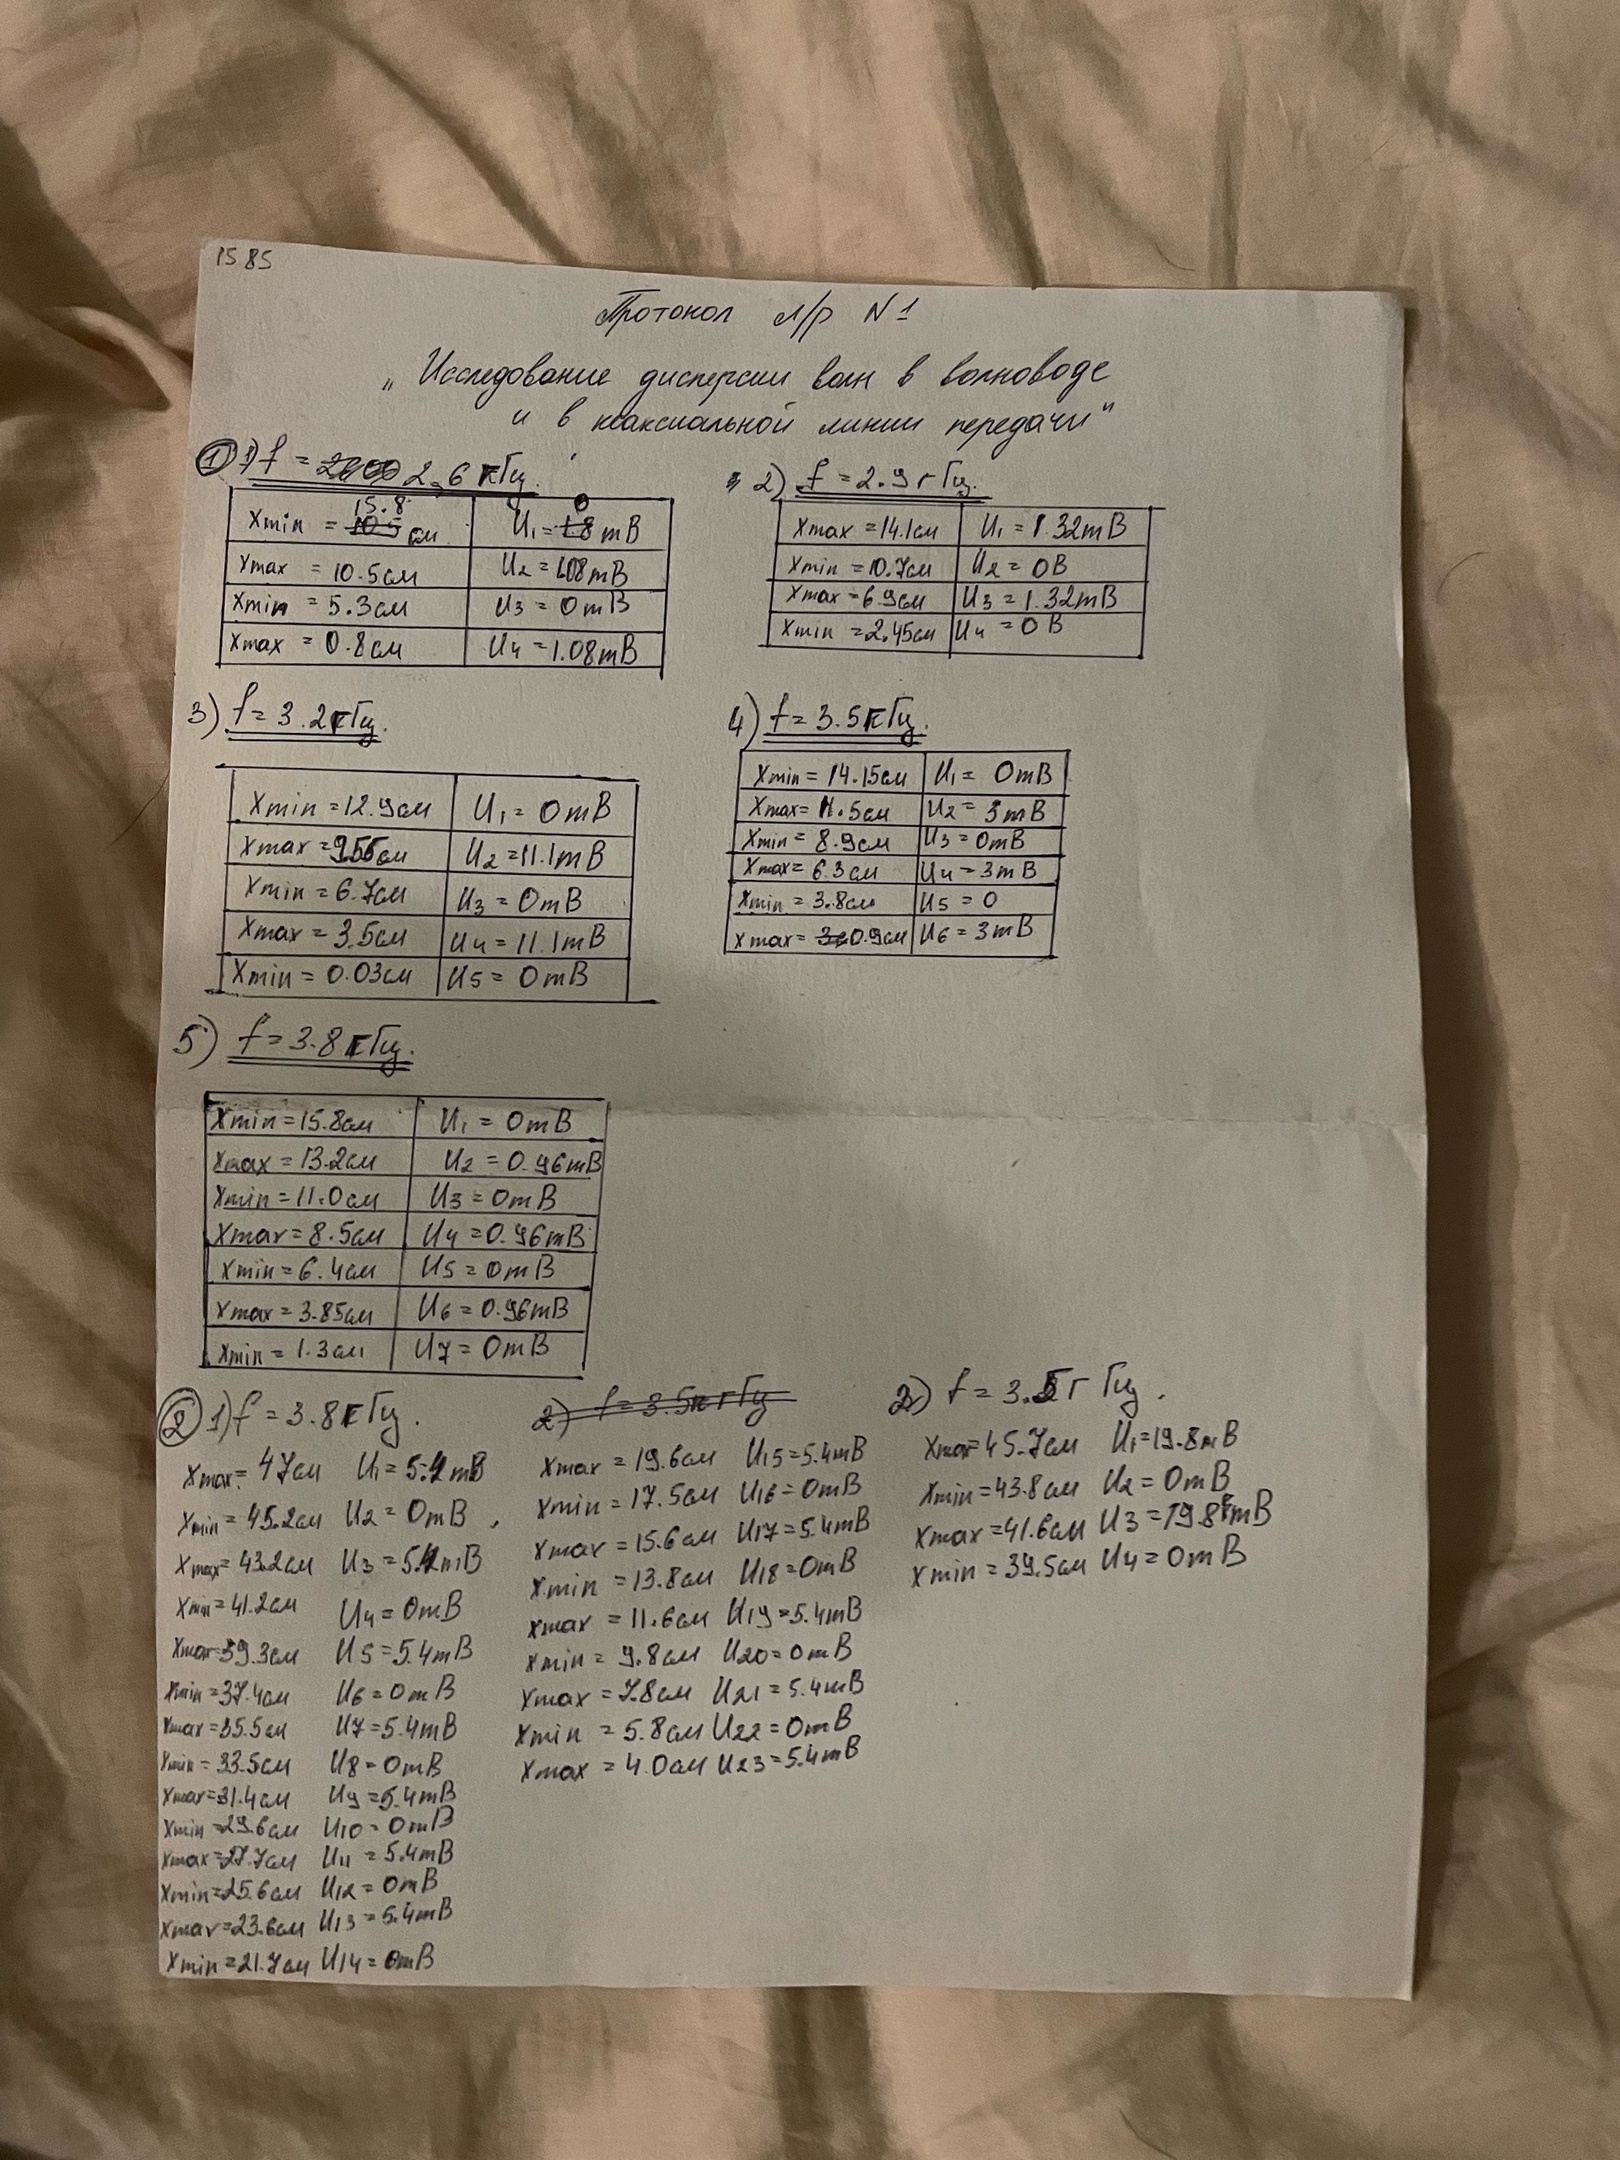 1585
Протокол л/р N1
„Исследование дисперсии волн в волноводе
и в коаксиальной линии передачи"
① 1) f = 2.6 гГц.
Xmin = 15.8 см U1 = 0 mВ
Xmax = 10.5см U2 = 1.08mВ
Xmin = 5.3см U3 = 0mВ
Xmax = 0.8см U4 = 1.08mВ
2) f = 2.9 гГц.
Xmax = 14.1см U1 = 1.32mВ
Xmin = 10.7см U2 = 0В
Xmax = 6.9см U3 = 1.32mВ
Xmin = 2.45см U4 = 0В
3) f = 3.2гГц.
Xmin = 12.9см U1 = 0mВ
Xmax = 9.55см U2 = 11.1mВ
Xmin = 6.7см U3 = 0mВ
Xmax = 3.5см U4 = 11.1mВ
Xmin = 0.03см U5 = 0mВ
4) f = 3.5гГц.
Xmin = 14.15см U1 = 0mВ
Xmax = 11.5см U2 = 3mВ
Xmin = 8.9см U3 = 0mВ
Xmax = 6.3см U4 = 3mВ
Xmin = 3.8см U5 = 0
Xmax = 0.9см U6 = 3mВ
5) f = 3.8гГц.
Xmin = 15.8см U1 = 0mВ
Xmax = 13.2см U2 = 0.96mВ
Xmin = 11.0см U3 = 0mВ
Xmax = 8.5см U4 = 0.96mВ
Xmin = 6.4см U5 = 0mВ
Xmax = 3.85см U6 = 0.96mВ
Xmin = 1.3см U7 = 0mВ
② 1) f = 3.8гГц.
Xmax = 47см U1 = 5.4mВ
Xmin = 45.2см U2 = 0mВ
Xmax = 43.2см U3 = 5.4mВ
Xmin = 41.2см U4 = 0mВ
Xmax = 39.3см U5 = 5.4mВ
Xmin = 37.4см U6 = 0mВ
Xmax = 35.5см U7 = 5.4mВ
Xmin = 33.5см U8 = 0mВ
Xmax = 31.4см U9 = 5.4mВ
Xmin = 29.6см U10 = 0mВ
Xmax = 27.7см U11 = 5.4mВ
Xmin = 25.6см U12 = 0mВ
Xmax = 23.6см U13 = 5.4mВ
Xmin = 21.7см U14 = 0mВ
2) f = 3.5 гГц
Xmax = 19.6см U15 = 5.4mВ
Xmin = 17.5см U16 = 0mВ
Xmax = 15.6см U17 = 5.4mВ
Xmin = 13.8см U18 = 0mВ
Xmax = 11.6см U19 = 5.4mВ
Xmin = 9.8см U20 = 0mВ
Xmax = 7.8см U21 = 5.4mВ
Xmin = 5.8см U22 = 0mВ
Xmax = 4.0см U23 = 5.4mВ
2) f = 3.5г Гц.
Xmax = 45.7см U1 = 19.8mВ
Xmin = 43.8см U2 = 0mВ
Xmax = 41.6см U3 = 19.8mВ
Xmin = 39.5см U4 = 0mВ